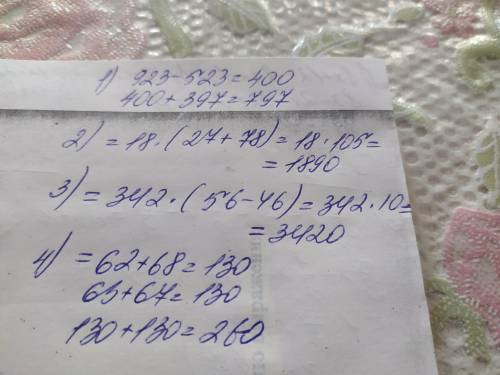 1) 923-523=400
400+397=797
2) =18·(27+78)=18·105=
=1890
3) =342·(56-46)=342·10=
=3420
4) =62+68=130
63+67=130
130+130=260